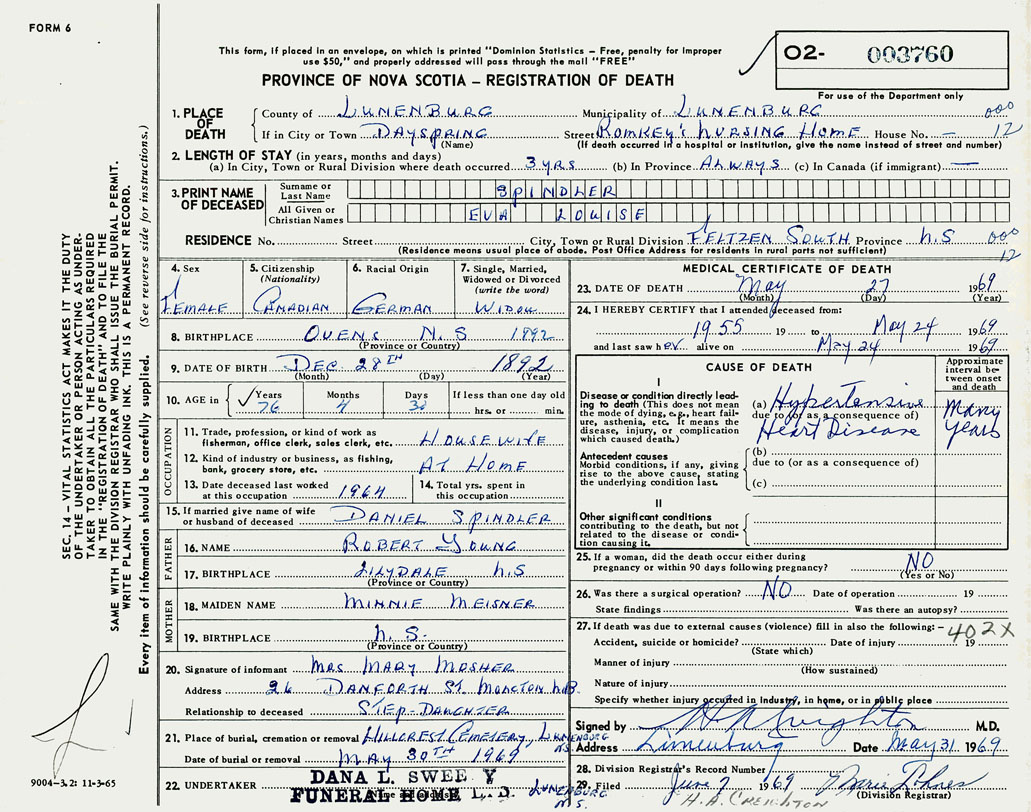 FORM 6
This form, if placed in an envelope, on which is printed "Dominion Statistics – Free, penalty for improper
use $50," and properly addressed will pass through the mail "FREE"
PROVINCE OF NOVA SCOTIA – REGISTRATION OF DEATH
O2- 003760
For use of the Department only
SEC. 14 – VITAL STATISTICS ACT MAKES IT THE DUTY
OF THE UNDERTAKER OR PERSON ACTING AS UNDER-
TAKER TO OBTAIN ALL THE PARTICULARS REQUIRED
IN THE "REGISTRATION OF DEATH" AND TO FILE THE
SAME WITH THE DIVISION REGISTRAR WHO SHALL ISSUE THE BURIAL PERMIT.
WRITE PLAINLY WITH UNFADING INK. THIS IS A PERMANENT RECORD.
Every item of information should be carefully supplied. (See reverse side for instructions.)
1. PLACE OF DEATH
County of LUNENBURG Municipality of LUNENBURG 000
If in City or Town DAYSPRING Street ROMKEY'S NURSING HOME House No. – 12
(Name) (If death occurred in a hospital or institution, give the name instead of street and number)
2. LENGTH OF STAY (in years, months and days)
(a) In City, Town or Rural Division where death occurred 3 YRS (b) In Province ALWAYS (c) In Canada (if immigrant) —
3. PRINT NAME OF DECEASED
Surname or Last Name SPINDLER
All Given or Christian Names EVA LOUISE
RESIDENCE No. Street City, Town or Rural Division FELTZEN SOUTH Province N.S 000
(Residence means usual place of abode. Post Office Address for residents in rural parts not sufficient) 12
4. Sex FEMALE
5. Citizenship (Nationality) CANADIAN
6. Racial Origin GERMAN
7. Single, Married, Widowed or Divorced (write the word) WIDOW
8. BIRTHPLACE OVENS N.S 1892
(Province or Country)
9. DATE OF BIRTH DEC. 28TH 1892
(Month) (Day) (Year)
10. AGE in Years 76 Months 4 Days 30 If less than one day old hrs. or min.
OCCUPATION
11. Trade, profession, or kind of work as fisherman, office clerk, sales clerk, etc. HOUSEWIFE
12. Kind of industry or business, as fishing, bank, grocery store, etc. AT HOME
13. Date deceased last worked at this occupation 1964
14. Total yrs. spent in this occupation
15. If married give name of wife or husband of deceased DANIEL SPINDLER
FATHER
16. NAME ROBERT YOUNG
17. BIRTHPLACE LILYDALE N.S
(Province or Country)
MOTHER
18. MAIDEN NAME MINNIE MEISNER
19. BIRTHPLACE N.S.
(Province or Country)
20. Signature of informant MRS MARY MOSHER
Address 26 DANFORTH ST. MONCTON N.B.
Relationship to deceased STEP-DAUGHTER
21. Place of burial, cremation or removal HILLCREST CEMETERY, LUNENBURG N.S.
Date of burial or removal MAY 30TH 1969
22. UNDERTAKER DANA L. SWEE Y
FUNERAL HOME LUNENBURG N.S.
9004–3.2: 11-3-65
MEDICAL CERTIFICATE OF DEATH
23. DATE OF DEATH May 27 1969
(Month) (Day) (Year)
24. I HEREBY CERTIFY that I attended deceased from:
1955 19 to May 24 1969
and last saw her alive on May 24 1969
CAUSE OF DEATH
Approximate interval between onset and death
I
Disease or condition directly leading to death (This does not mean the mode of dying, e.g., heart failure, asthenia, etc. It means the disease, injury, or complication which caused death.)
(a) Hypertensive Many
due to (or as a consequence of)
Heart Disease Years
Antecedent causes
Morbid conditions, if any, giving rise to the above cause, stating the underlying condition last.
(b)
due to (or as a consequence of)
(c)
II
Other significant conditions
contributing to the death, but not related to the disease or condition causing it.
25. If a woman, did the death occur either during pregnancy or within 90 days following pregnancy? NO
(Yes or No)
26. Was there a surgical operation? NO Date of operation 19
State findings Was there an autopsy?
27. If death was due to external causes (violence) fill in also the following: – 402X
Accident, suicide or homicide? Date of injury 19
(State which)
Manner of injury
(How sustained)
Nature of injury
Specify whether injury occurred in Industry, in home, or in public place
Signed by H A Creighton M.D.
Address Lunenburg Date May 31 1969
28. Division Registrar's Record Number
29. Filed June 7 1969
(Division Registrar)
H.A. CREIGHTON